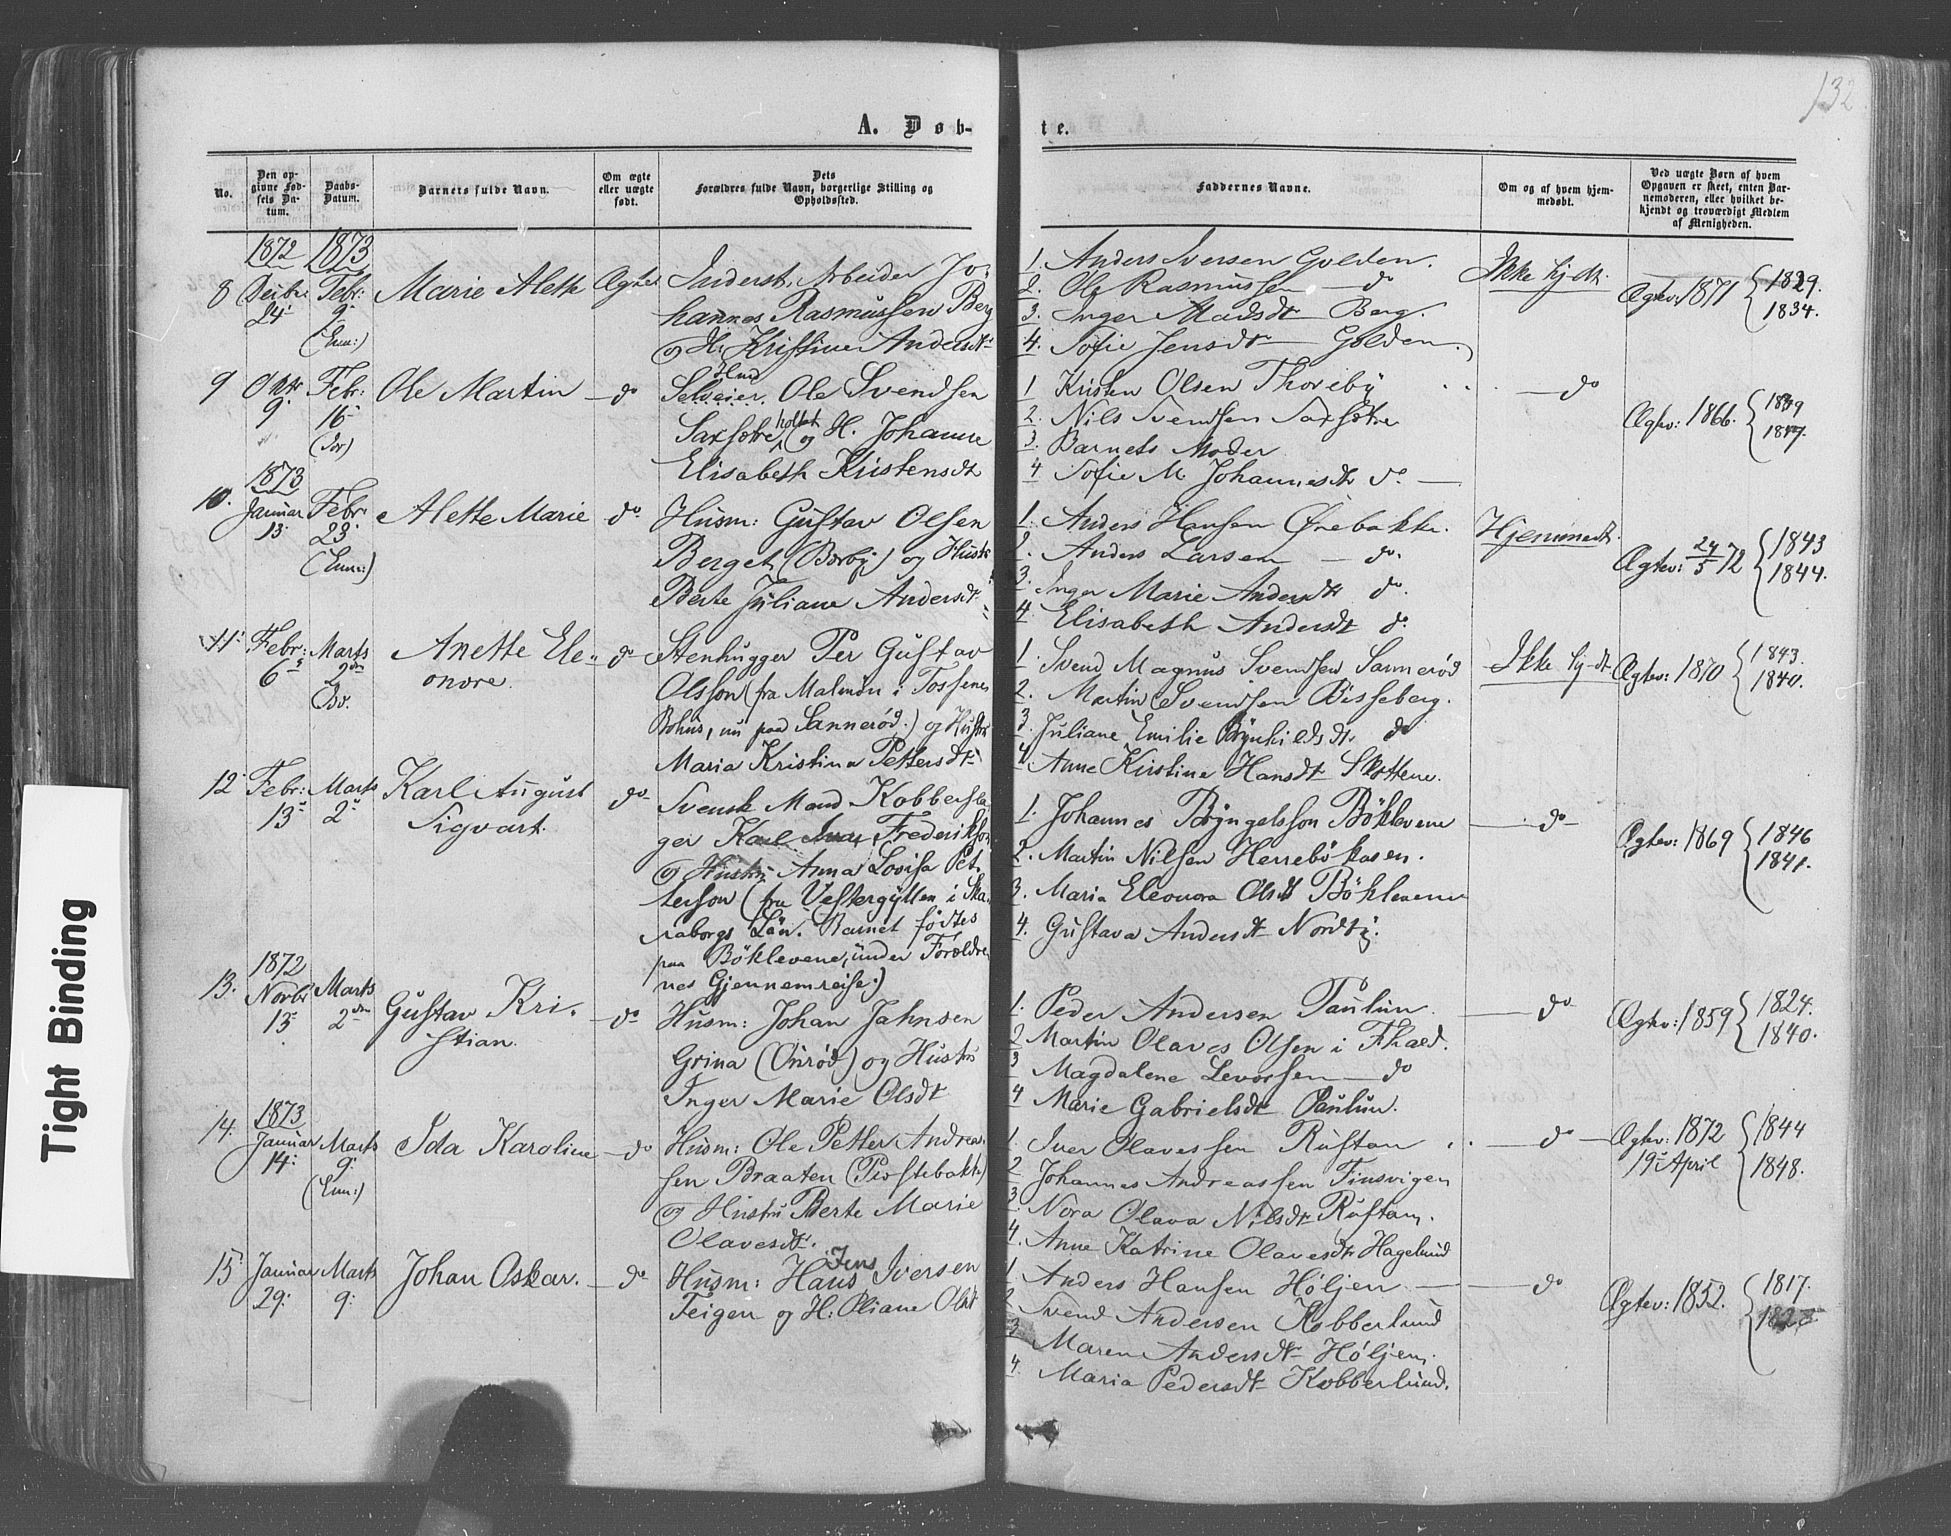 132
A. Døb-
te.
No.
Den op-
givne Fød-
sels Da-
tum.
Daabs-
Datum.
Barnets fulde Navn.
Om ægte
eller uægte
født.
Dets
Forældres fulde Navn, borgerlige Stilling og
Opholdssted.
Faddernes Navne.
Om og af hvem hjem-
medøbt.
Ved uægte Børn af hvem
Opgaven er skeet, enten Bar-
nemoderen, eller hvilket be-
kjendt og troværdigt Medlem
af Menigheden.
1872 1873
8 24 Febr: 9 (Enn:) Marie Alette Ægte
Inderst, Arbeider Jo-
hannes Rasmussen Berg
og H. Kristine Andersdtr
1. Anders Iversen Golden.
2. Ole Rasmussen — do
3. Inger Madsdtr Berg.
4. Sofie Jensdtr Golden.
Ikke hj-dt.
Ægtev: 1871 { 1829. 1834.
9 Oktbr 9. Febr: 16 (Id) Ole Martin — do
Husm
Selveier Ole Svendsen
Saxsøtre, og H. Johanne
Elisabeth Kristensdt
1 Kristen Olsen Thoreby
2. Nils Svendsen Saxsøtre
3. Barnets Moder
4 Sofie M Johannesdt do —
— do
Ægtev: 1866. { 1839 1847.
1873
10. Januar 13. Febr. 23 (Enn:) Alette Marie do
Husm: Gustav Olsen
Berget (Borby) og Hustr
Berte Juliane Andersdt
1. Anders Hansen Ørebakke.
2. Anders Larsen — do.
3. Inger Marie Andersdt do.
4. Elisabeth Andersdt do
Hjemmedt.
Ægtev: 24/5 72 { 1843 1844.
11. Febr: 6 Marts 2den Anette Ele-
onore. do
Stenhugger Per Gustav
Olsson (fra Malmön i Tossene
Bohus, nu paa Sannerød.) og Hustru
Maria Kristina Pettersdt
1. Svend Magnus Svendsen Sannerød
2. Martin Svendsen Bisseberg.
3. Juliane Emilie Brynhildsdt. do
4. Anne Kirstine Hansdt Skottene.
Ikke hj-dt
Ægtev: 1870 { 1843. 1840.
12 Febr: 13 Marts 2 Karl August
Sigvart. do
Svensk Mand Kobbersla-
ger Karl Frederiksson
og Hustru Anna Lovisa Pet-
terson (fra Vestergyllen i Ska-
raborgs Län. Barnet fødtes
paa Böklevene, under Forældre-
nes Gjennemreise.)
1. Johannes Bryngelsson Böklevene
2. Martin Nilsen Herrebökasen.
3. Maria Eleonora Olsdt Böklevene
4. Gustava Andersdt Nordby.
— do —
Ægtev: 1869 { 1846 1841.
1872
13. Novbr 13 Marts 2den Gustav Kri-
stian. do
Husm: Johan Jahnsen
Grina (Onrød) og Hustru
Inger Marie Olsdt
1. Peder Andersen Paulun.
2 Martin Olaves Olsen i Fhald.
3 Magdalene Levorsen — do
4 Marie Gabrielsdt Paulun.
— do
Ægtev: 1859 { 1824. 1840.
1873
14. Januar 14: Marts 9. (Enn:) Ida Karoline — do
Husm: Ole Petter Andreas-
sen Braaten (Prestebakke)
og Hustru Berte Marie
Olavesdt.
1. Iver Olavessen Rustan
2 Johannes Andreassen Finsvigen
3. Nora Olava Nilsdt Rustan.
4. Anne Katrine Olavesdt. Hagelund
— do —
Ægtev: 1872 19 April { 1844 1848.
15 Januar 29: Marts 9: Johan Oskar. — do
Jens
Husm: Hans Iversen
Feigen og H: Oliane Olsdt
1 Anders Hansen Höljen. —
2 Svend Andersen Kobberlund
3 Maren Andersdt Höljen.
4. Maria Pedersdt Kobberlund.
— do
Ægtev: 1852. { 1817.
Tight Binding